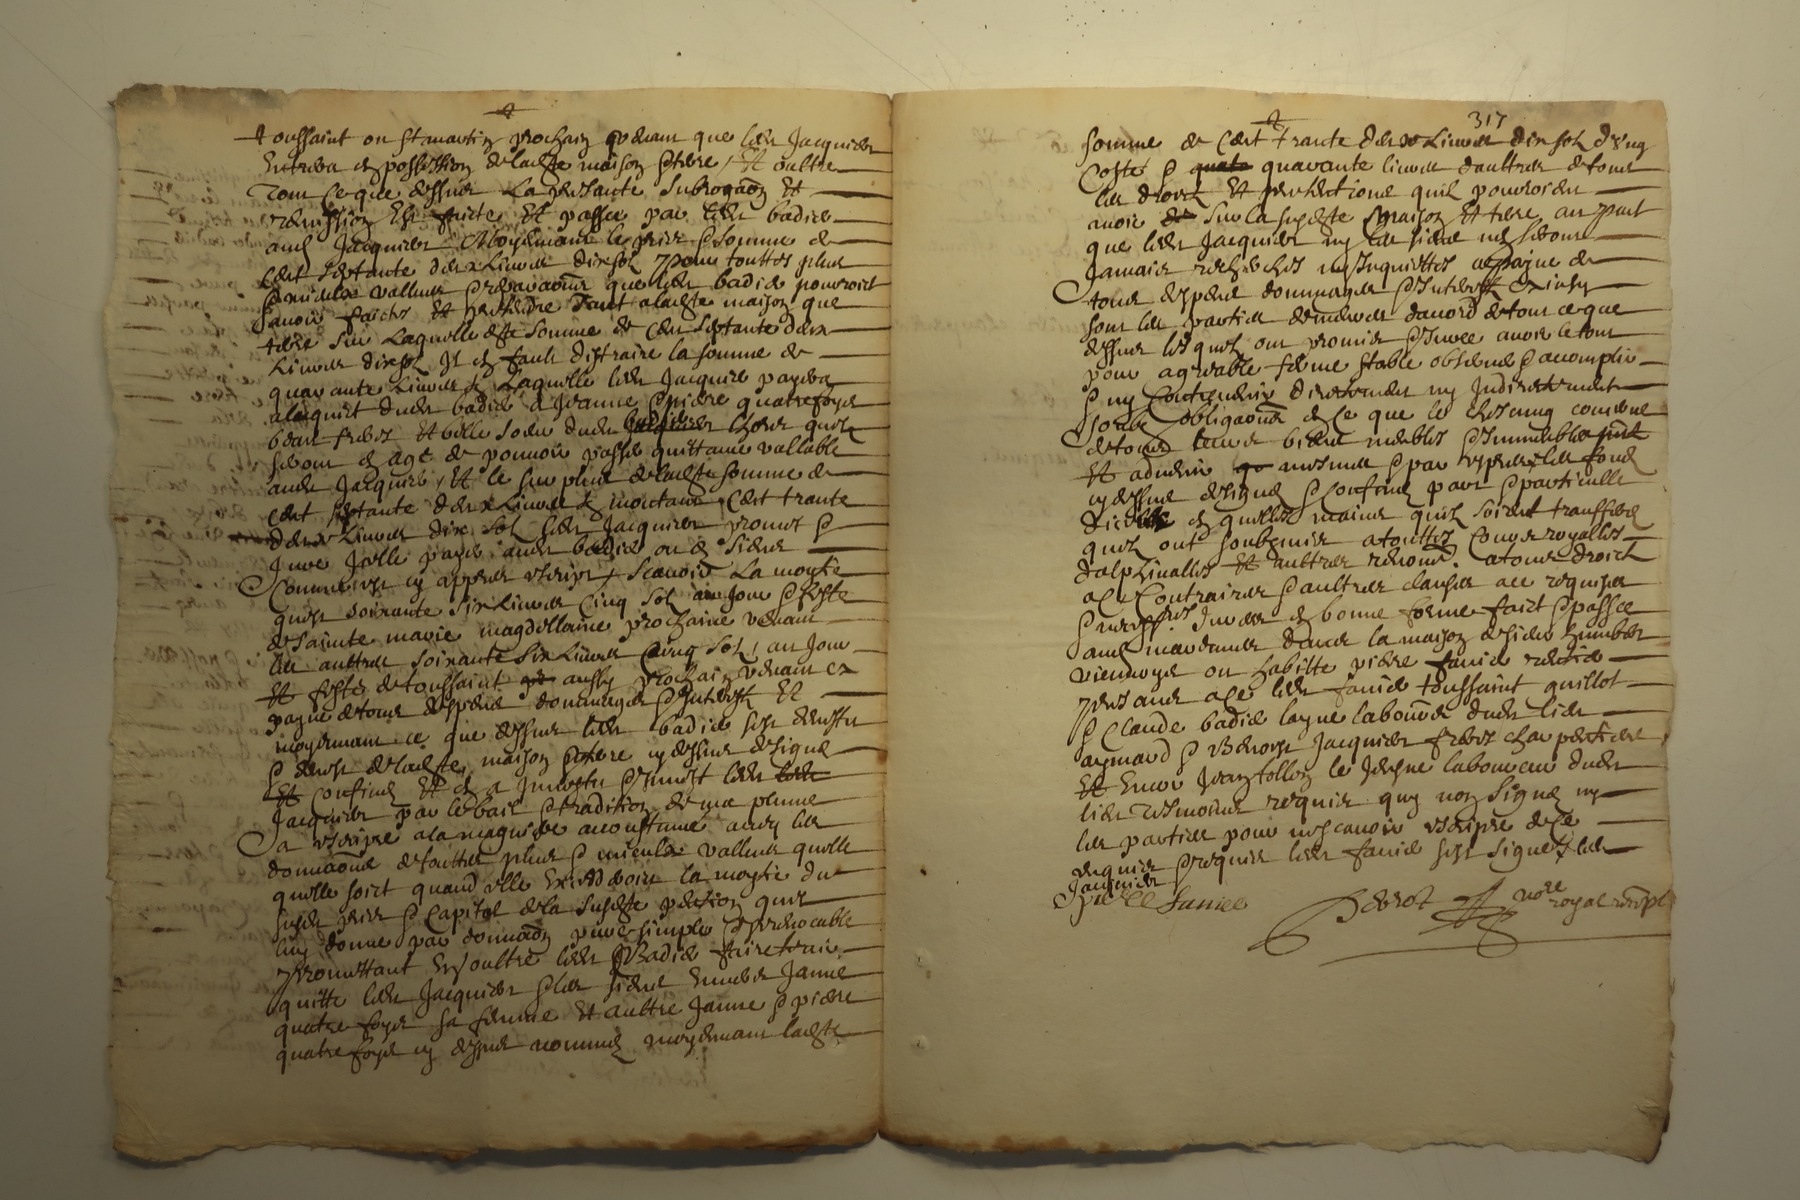 toussaint ou st martin prochain venant que led Jacquier
entrera en possession de ladte maison & terre, Et oultre
Tout ce que dessus La presante subrogaon Et
remission est faicte Et passee par led badier
aud Jacquier Moyenant le prix & somme de
Cent septante deux Livres dix sol pour touttes plus
& mieux vallues & reparaons que led badier pourroit
avoir faictes Et pretendre Tant a ladte maison que
terre sur Laquelle dte somme de Cent septante deux
Livres dix sol Il en fault distraire la somme de
quarante Livres Laquelle led Jacquier payera
a lacquit dud badier a Jeanne & piere quatrefoys
beau freres Et belle soeur dud badier lhors quilz
seront en age de pouvoir passer quittance vallable
aud Jacquier, Et le surplus de ladte somme de
Cent septante deux Livres montant Cent trante
deux Livres dix sol led Jacquier promet &
Jure Jcelle payer aud badier ou es siens
Comme est cy appres escript, scavoir La moytie
quest soixante six Livres Cinq sol au jour & feste
de sainte marie magdellaine prochaine venant
les aultres soixante six Livres Cinq sol, au jour
Et festes de toussaint aussy prochain venant ex
payne de tous despens dommages & Interest Et
moyennant ce que dessus led badier sest devestu
& demis de ladte maison & terre cy dessus designe
Et Confine Et en a Investu & mis led
Jacquier par le bail & tradition de ma plume
a escripre a la maniere accoustume avec les
donnaons de touttes plus & mieulx vallues quelle
quelle soict quand elle excedderoit la moytie du
susd prix & Capital de la susdte pention quil
luy donne par donnaon pure simple & yrrevocable
promettant en oultre led Badier faire tenir
quitte led Jacquier & les siens envers Janne
quatre foys sa femme Et aultre Janne & piere
quatre foys cy dessus nommez moyenant ladte
317
somme de Cent trante deux Livres dix sol dung
Coste & quarante livres daultres de tous
les droictz Et pretentions quilz pourroient
avoir sur la susdte maison Et terre au part
que led Jacquier ny les siens nen seront
Jamais recherches ny Inquiettes a payne de
tous despens dommages & Interest ex ainsy
sont les parties demeures daccord de tout ce que
dessus lesquelz ont promis & Juré avoir le tout
pour agreable ferme stable observer & accomplir
& ny Contrevenir directement ny Indirectement
soubz obligaons en ce que le chescung concerne
de tous leurs biens meubles & Immeubles
Et advenir mesmes & par expres les fondz
cy dessus designe & Confine part & particulle
diceux en quelles mains quilz soient transferes
quilz ont soubzmis a touttes Cours royalles
dalphinalles Et aultres renonce a tous droictz
a ce Contraires & aultres clauses a ce requises
& necessres Jurees en bonne forme faict & passee
aud mandement dans la maison de sieur humbert
viennoys ou habitte piere fanier rentier
presans a ce led fanier toussaint guillot
& Claude badier layne laboureur dud lieu
aymard & Benoist Jacquier freres charpentiers
Et Encor Jean follon le Jeusne laboureur dud
lieu tesmoins requis quy nont signe ny
les parties pour ne scavoir escripre de ce
enquis & requis led fanier sest signe & led
Jacquier
piere fanier
Perrot nore royal